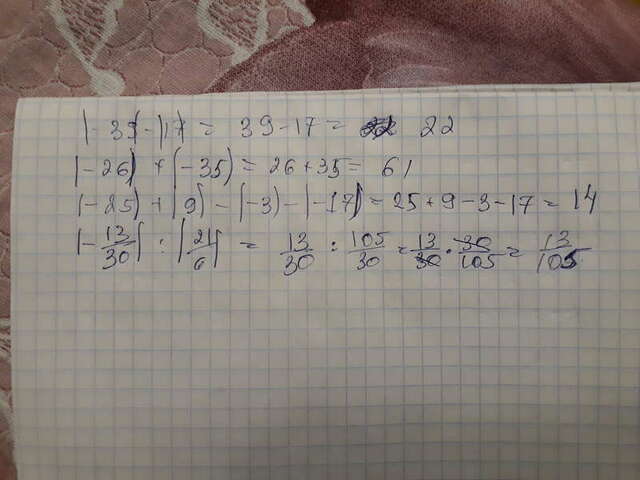 |-39|-|17| = 39-17= 22
|-26| + |-35| = 26+35= 61
|-25| + |9| - |-3| - |-17| = 25+9-3-17 = 14
|-13/30| : |21/6| = 13/30 : 105/30 = 13/30 · 30/105 = 13/105